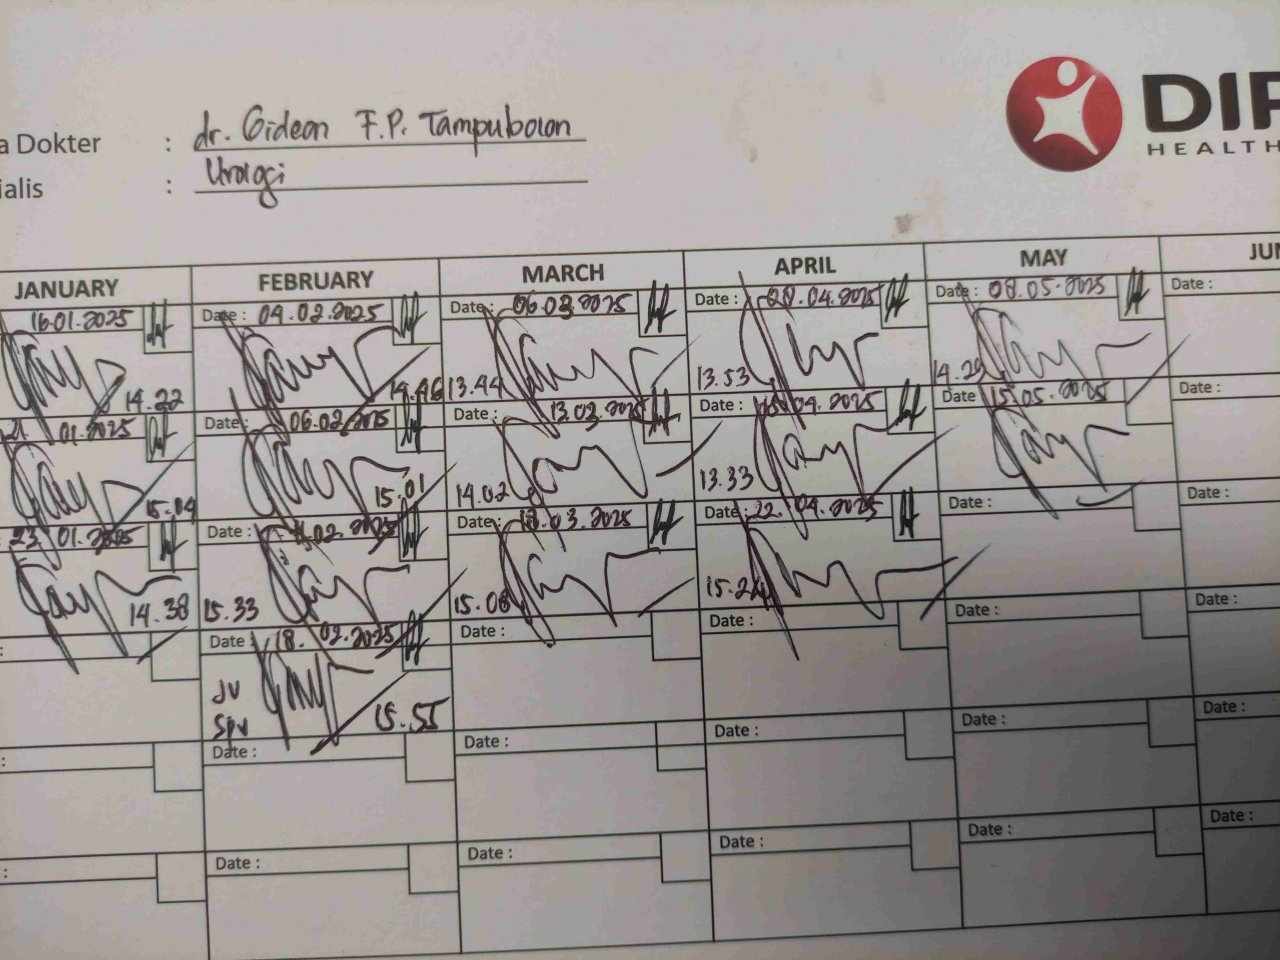 DIP
HEALTH
a Dokter : dr. Gideon F.P. Tampubolon
ialis : Urologi
JANUARY FEBRUARY MARCH APRIL MAY JUN
16.01.2025 Date : 04.02.2025 Date : 06.03.2025 Date : .04.2025 Date : 08.05.2025 Date :
14.22 14.46 13.44 13.53 14.29
21.01.2025 Date : 06.02.2025 Date : 13.03.2025 Date : .04.2025 Date : 15.05.2025 Date :
15.04 15.01 14.02 13.33
23.01.2025 Date : 11.02.2025 Date : 18.03.2025 Date : 22.04.2025 Date : Date :
14.38 15.33 15.08 15.24
: Date : 18.02.2025 Date : Date : Date : Date :
JV
Spv 15.55
: Date : Date : Date : Date : Date :
: Date : Date : Date : Date : Date :